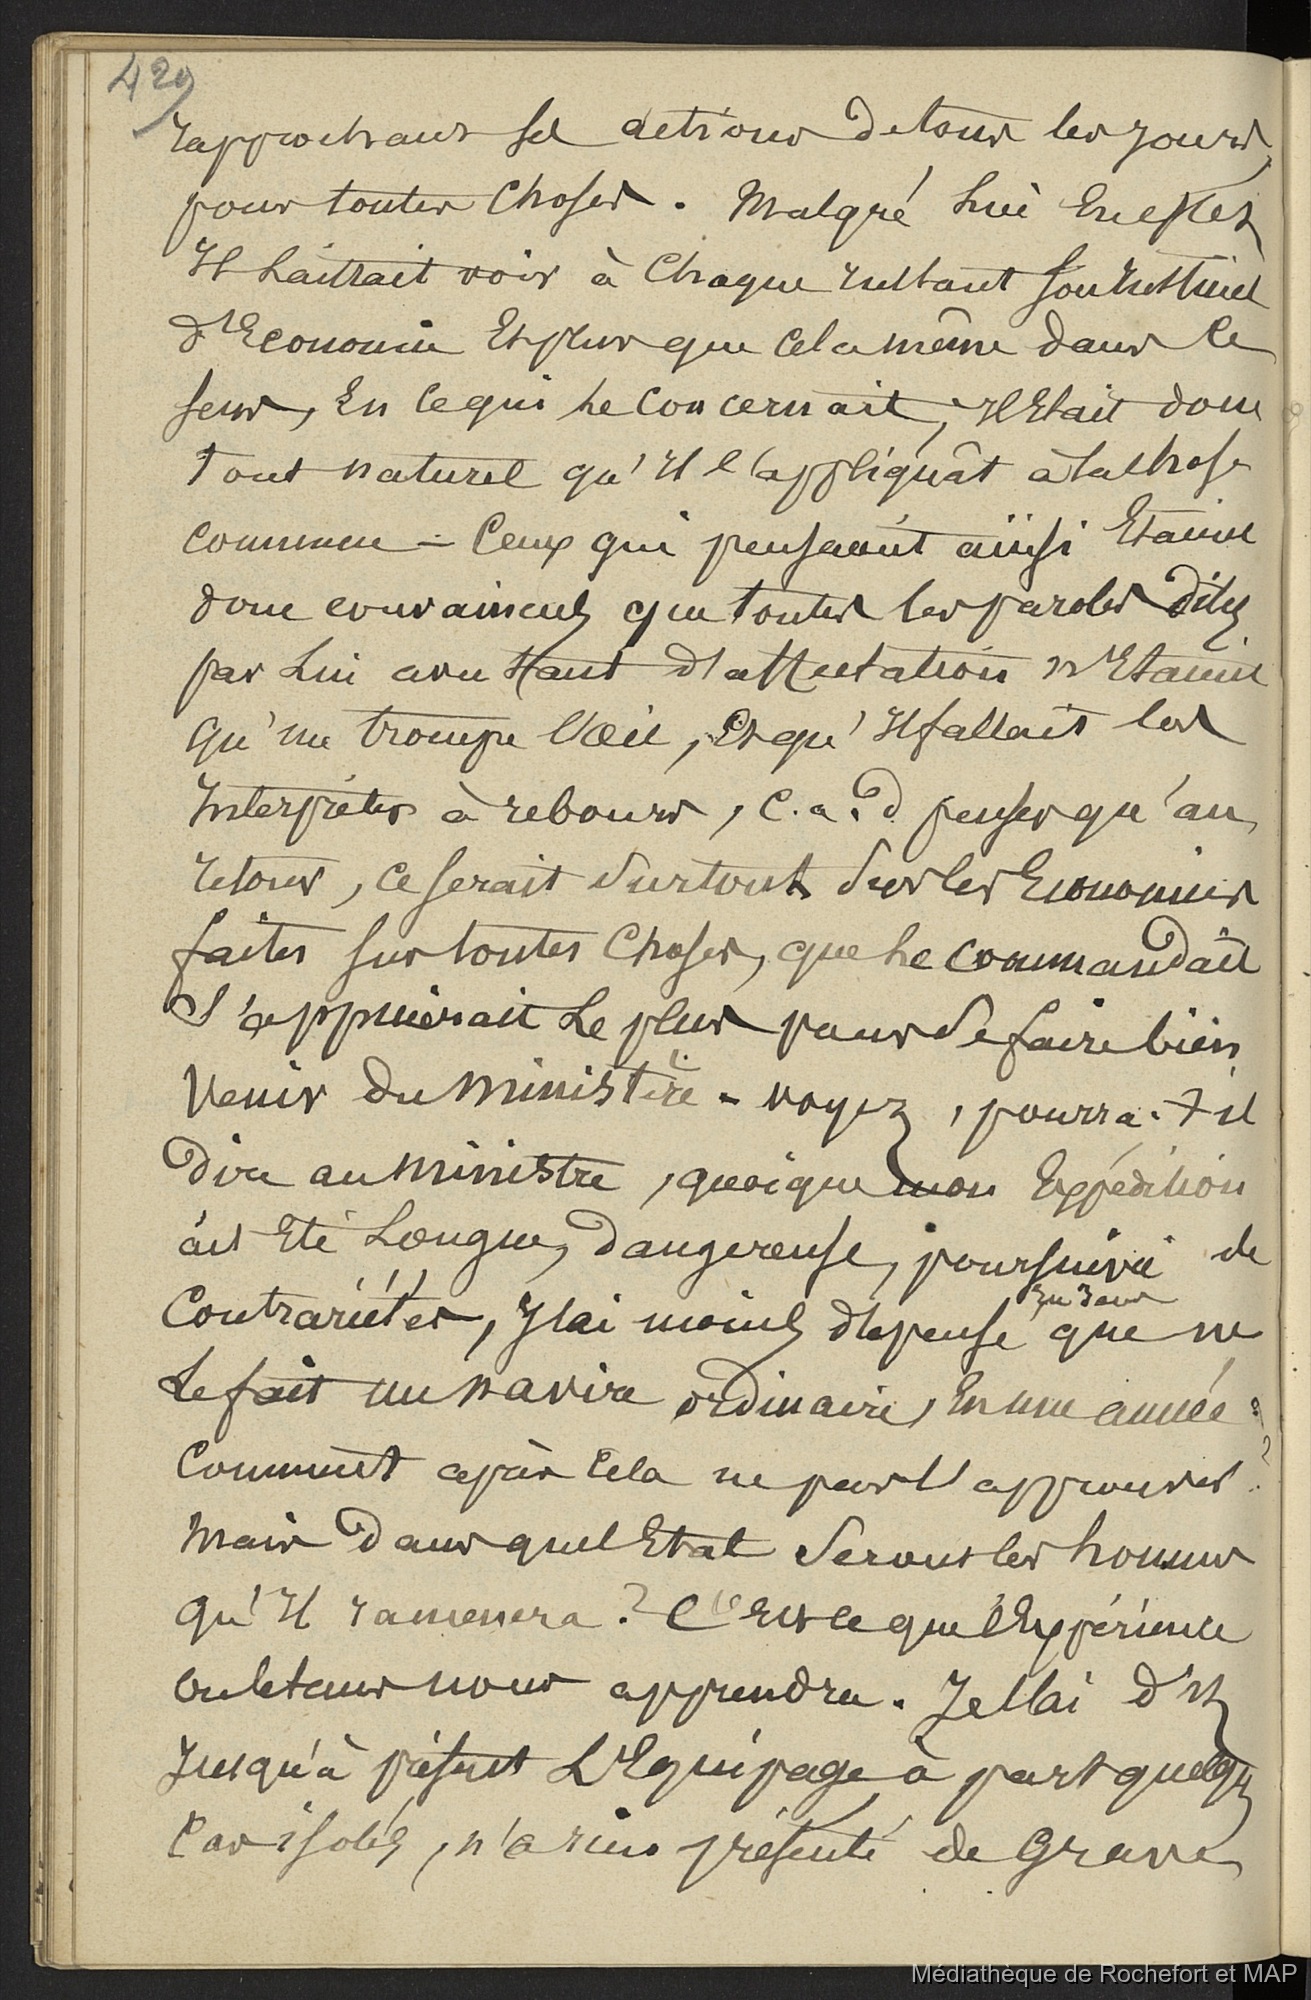 429
rapprochant ses actions de tous les jours,
pour toutes choses. Malgré lui En effet
Il laissait voir à chaque Instant son Instinct
d'Economie Et plus que cela même dans le
sens, En ce qui le concernait, Il Etait donc
tout naturel qu'Il l'appliquât à la chose
commune - Ceux qui pensaient ainsi Etaient
donc convaincus que toutes les paroles dites
par Lui avec tant d'affectation n'Etaient
qu'un trompe l'œil, Et qu'Il fallait les
Interpréter à rebours, c.a.d. penser qu'au
retour, ce serait surtout sur les Economies
faites sur toutes choses, que le commandant
s'appuierait le plus pour se faire bien
venir du ministère - voyez, pourra-t-il
dire au ministre, quoique mon Expédition
ait Eté Longue, dangereuse, poursuivie de
contrariétés, J'ai moins dépensé que ne
Le fait un navire ordinaire, En une année
Comment après cela ne pas l'approuver ?
Mais dans quel Etat seront les hommes
qu'Il ramenera ? C'Est ce que l'Expérience
ou le tems nous apprendra. Je l'ai dit
Jusqu'à présent L'Equipage à part quelqs
cas isolés, n'a rien présenté de Grave
Médiathèque de Rochefort et MAP